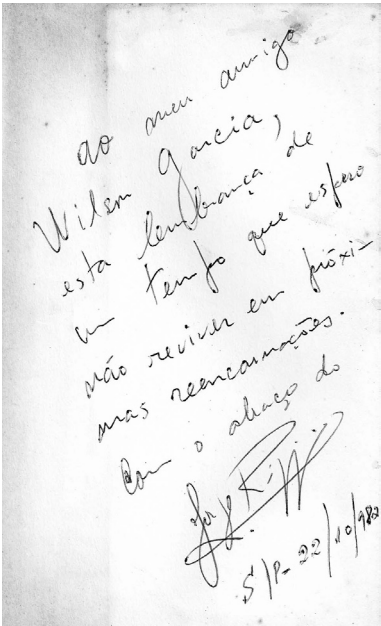 ao meu amigo
Wilson Garcia,
esta lembrança de
um tempo que espero
não reviver em próxi-
mas reencarnações.
Com o abraço do
Jorge Rizzini
S/P- 22/10/982